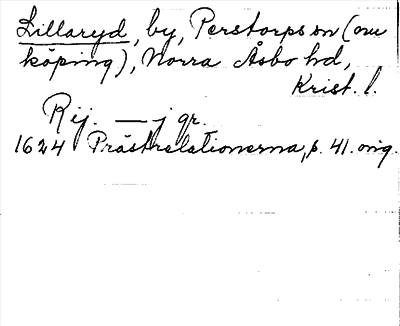 Lillaryd, by, Perstorps sn (nu
köping), Norra Åsbo hd,
Krist. l.
Rij. — j gr.
1624 Prästrelationerna, p. 41. orig.